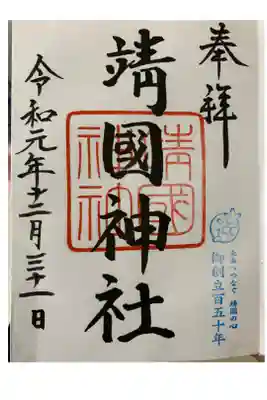 奉拝
靖國神社
靖國神社
令和元年十二月三十一日
御創立百五十年